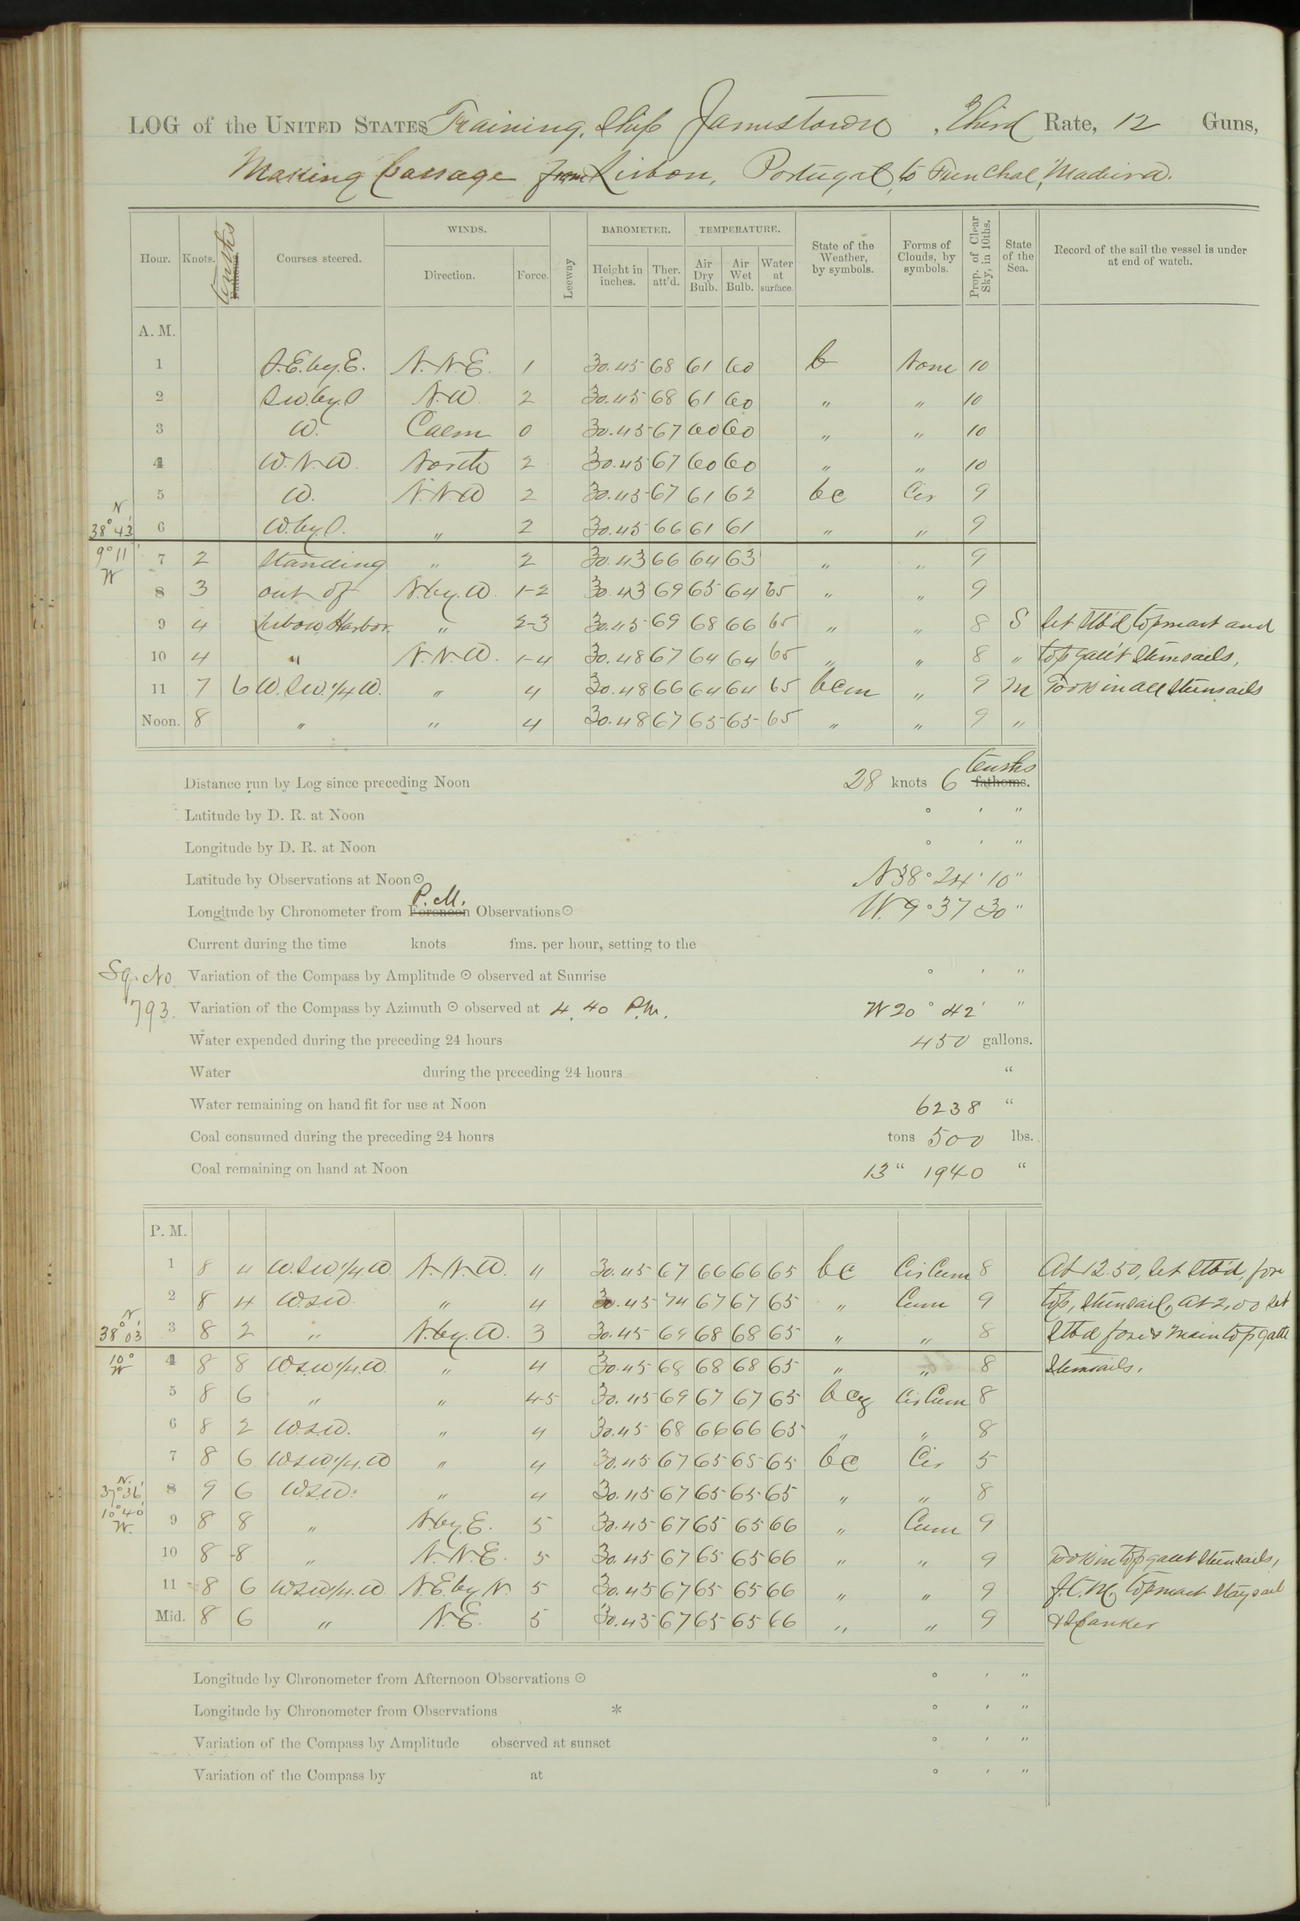 LOG of the UNITED STATES Training Ship Jamestown, Third Rate, 12 Guns,
Making Passage from Lisbon, Portugal, to Funchal, Madeira.
Hour. Knots. Fathoms. tenths Courses steered. WINDS. Direction. Force. Leeway BAROMETER. Height in inches. Ther. att'd. TEMPERATURE. Air Dry Bulb. Air Wet Bulb. Water at surface. State of the Weather, by symbols. Forms of Clouds, by symbols. Prop. of Clear Sky, in 10ths. State of the Sea. Record of the sail the vessel is under at end of watch.
A. M.
1 S.E. by E. N.N.E. 1 30.45 68 61 60 b None 10
2 SW. by S N.W. 2 30.45 68 61 60 " " 10
3 W. Calm 0 30.45 67 60 60 " " 10
4 W.N.W. North 2 30.45 67 60 60 " " 10
5 W. N.N.W 2 30.45 67 61 62 bc Cir 9
N 38° 43' 6 W. by S. " 2 30.45 66 61 61 " " 9
9° 11' W 7 2 Standing " 2 30.43 66 64 63 " " 9
8 3 out of N. by W. 1-2 30.43 69 65 64 65 " " 9
9 4 Lisbon Harbor " 2-3 30.45 69 68 66 65 " " 8 S Set Stb'd topmast and
10 4 " N.N.W. 1-4 30.48 67 64 64 65 " " 8 " top gall't Stunsails,
11 7 6 W.SW. 1/4 W. " 4 30.48 66 64 64 65 bcm " 9 M Took in all Stunsails
Noon. 8 " " 4 30.48 67 65 65 65 " " 9 "
Distance run by Log since preceding Noon 28 knots 6 fathoms. tenths
Latitude by D. R. at Noon ° ' "
Longitude by D. R. at Noon ° ' "
Latitude by Observations at Noon ☉ N 38° 24' 10"
Longitude by Chronometer from Forenoon P.M. Observations ☉ W. 9° 37 30"
Current during the time knots fms. per hour, setting to the
Sq. No. Variation of the Compass by Amplitude ☉ observed at Sunrise ° ' "
793. Variation of the Compass by Azimuth ☉ observed at 4.40 P.M. W 20° 42' "
Water expended during the preceding 24 hours 450 gallons.
Water during the preceding 24 hours "
Water remaining on hand fit for use at Noon 6238 "
Coal consumed during the preceding 24 hours tons 500 lbs.
Coal remaining on hand at Noon 13 " 1940 "
P. M.
1 8 4 W.SW. 1/4 W N.N.W. 4 30.45 67 66 66 65 bc Cir Cum 8 At 12.50, Set Stb'd, fore
2 8 4 WSW " 4 30.45 74 67 67 65 " Cum 9 top, Stunsail, at 2,00 set
N 38° 03' 3 8 2 " N. by W. 3 30.45 69 68 68 65 " " 8 Stbd fore & main top gallt
10° W 4 8 8 WSW 1/4 W " 4 30.45 68 68 68 65 " " 8 Stunsails.
5 8 6 " " 4-5 30.45 69 67 67 65 bcq Cir Cum 8
6 8 2 WSW. " 4 30.45 68 66 66 65 " " 8
7 8 6 WSW 1/4 W " 4 30.45 67 65 65 65 bc Cir 5
N. 37° 36' 8 9 6 WSW. " 4 30.45 67 65 65 65 " " 8
10° 40' W. 9 8 8 " N. by E. 5 30.45 67 65 65 66 " Cum 9
10 8 8 " N.N.E. 5 30.45 67 65 65 66 " " 9 Took in top gallt Stunsails,
11 8 6 WSW 1/4 W N.E. by N. 5 30.45 67 65 65 66 " " 9 topmast Staysail
Mid. 8 6 " N.E. 5 30.45 67 65 65 66 " " 9 & Spanker
Longitude by Chronometer from Afternoon Observations ☉ ° ' "
Longitude by Chronometer from Observations * ° ' "
Variation of the Compass by Amplitude observed at sunset ° ' "
Variation of the Compass by at ° ' "